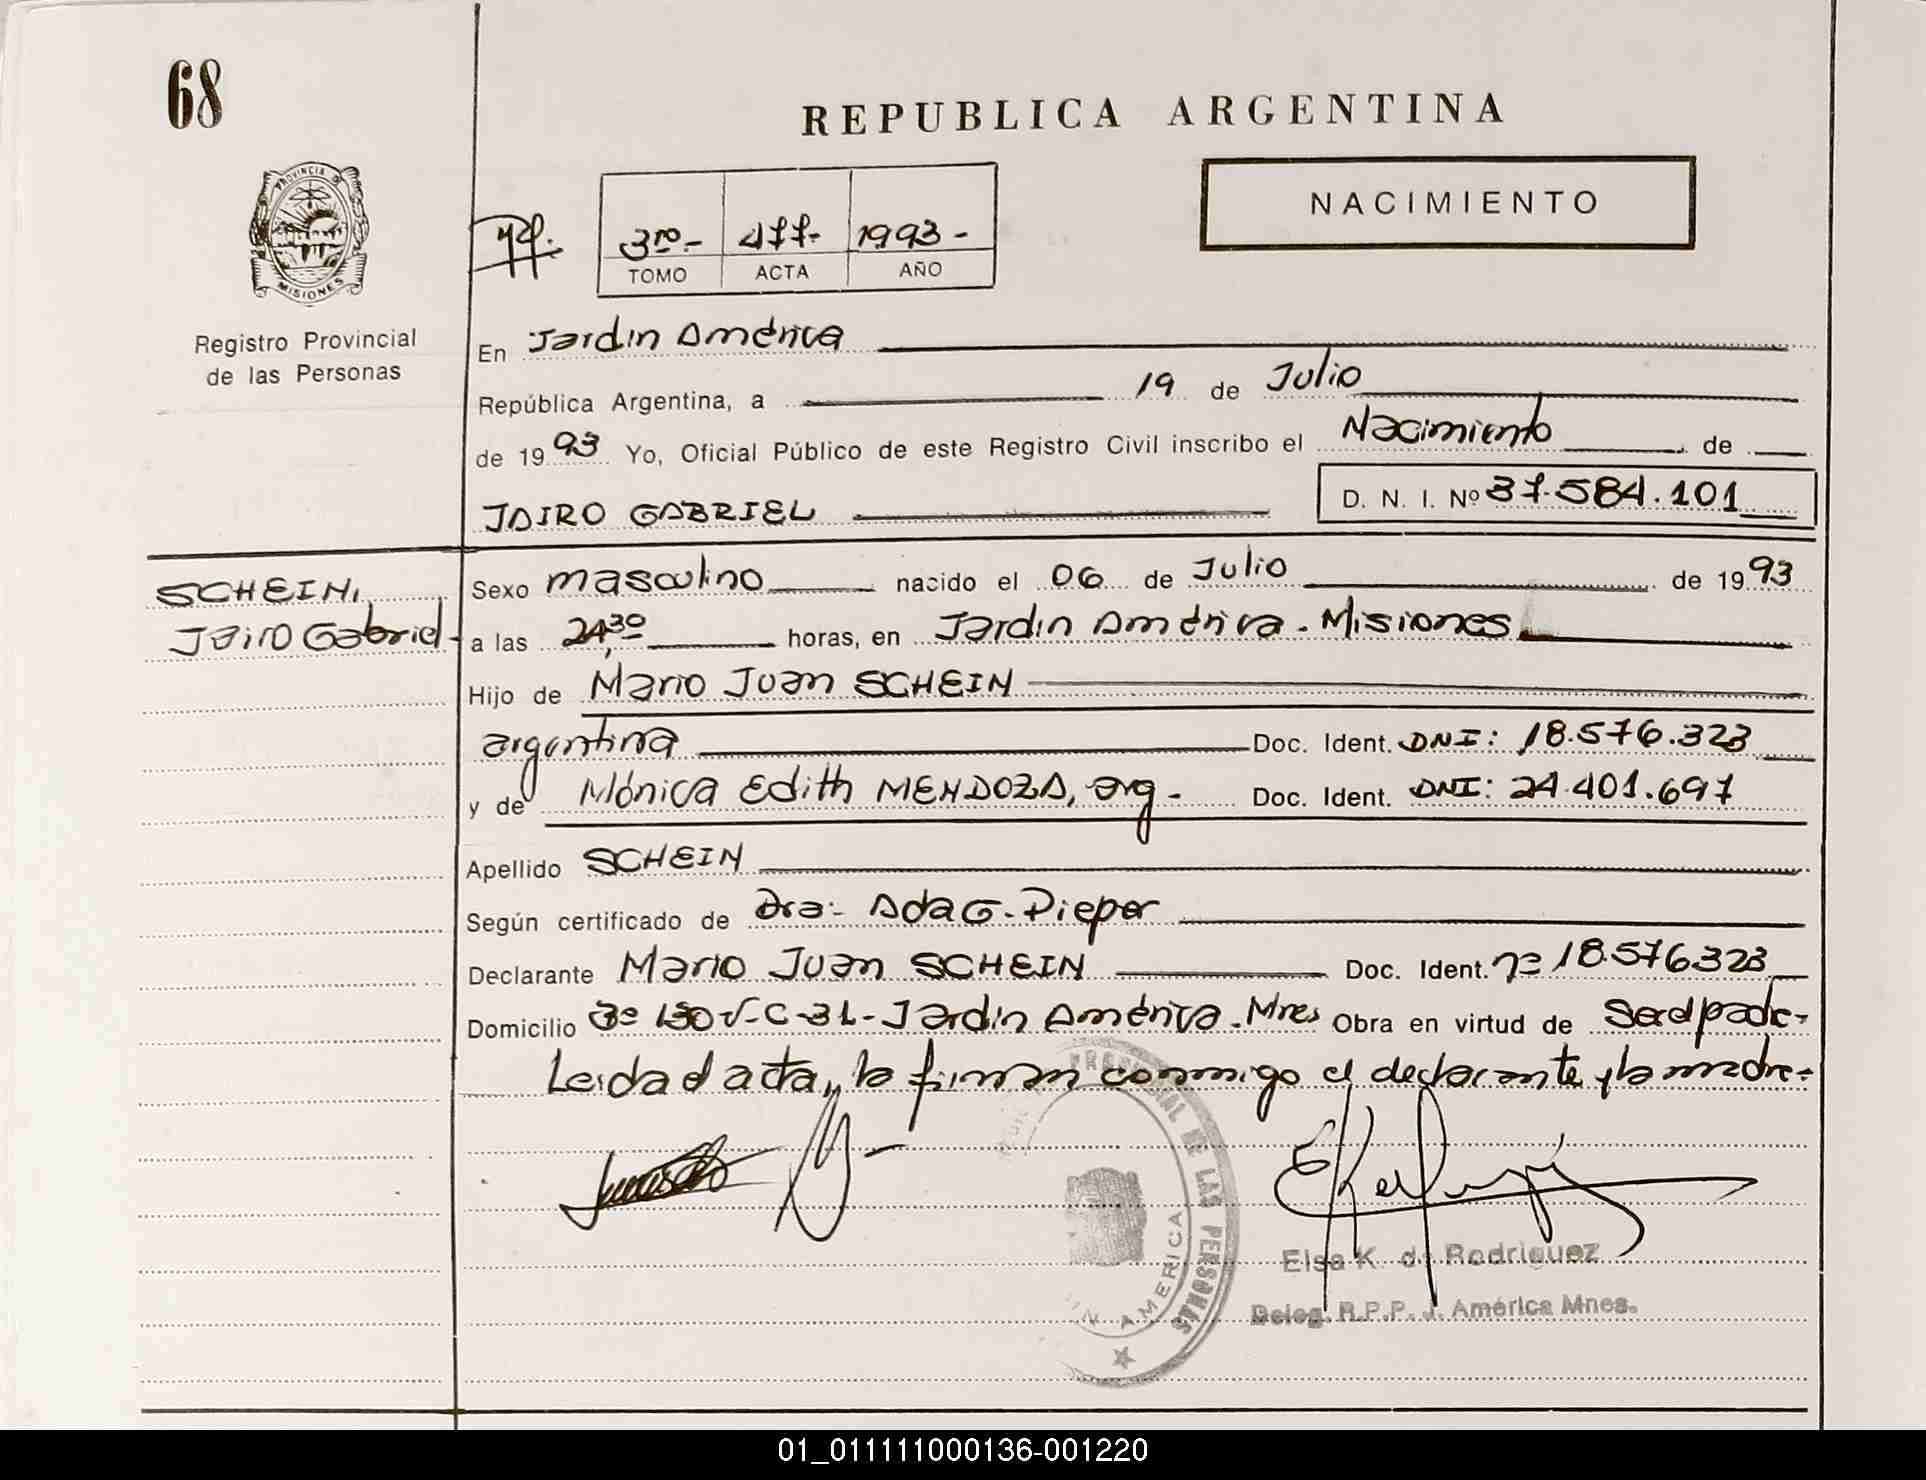 68
REPUBLICA ARGENTINA
PROVINCIA DE
MISIONES
NACIMIENTO
3ro.- 477- 1993-
TOMO ACTA AÑO
Registro Provincial
de las Personas
En Jardin América
República Argentina, a 19 de Julio
de 1993 Yo, Oficial Público de este Registro Civil inscribo el Nacimiento de
JAIRO GABRIEL D. N. I. Nº 37.584.101
SCHEIN,
Jairo Gabriel
Sexo masculino nacido el 06 de Julio de 1993
a las 24,30 horas, en Jardin América. Misiones
Hijo de Mario Juan SCHEIN
argentina Doc. Ident. DNI: 18.576.323
y de Mónica Edith MENDOZA, arg- Doc. Ident. DNI: 24.401.697
Apellido SCHEIN
Según certificado de Dra: Ada G. Pieper
Declarante Mario Juan SCHEIN Doc. Ident. nº 18.576323
Domicilio Jardin América. Mnes Obra en virtud de Ser el padre-
Leida el acta, la firman conmigo el declarante y la madre-
PROVINCIAL DE LAS PERSONAS
AMERICA
Elsa K. de Rodriguez
Deleg. R.P.P. J. América Mnes.
01_011111000136-001220